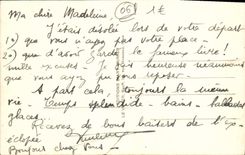 Ma chère Madeleine, (06) 1€
J'étais désolée lors de votre départ
1°) que vous n'ayez pas votre place -
2°) que d'avoir gardé le fameux livre!
mille excuses - Je suis heureuse néanmoins
que vous ayez pu vous reposer -
A part cela, toujours la même
vie - temps splendide - bains - ballades
glaces -
Recevez de bons baisers de l'ex-
éclopée
Bonjour chez vous -